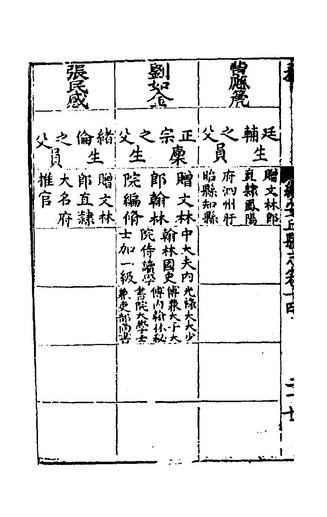 安丘縣志卷十四
廷輔之父
生員
贈文林郎
直隸鳳陽
府泗州盱
眙縣知縣
劉如金
正宗之父
廩生
贈文林
郎翰林
院編脩
中大夫內
翰林國史
院侍讀學
士加一級
光祿大夫少
傅兼太子太
傅內翰林秘
書院大學士
兼吏部尚書
張民感
緒倫之父
生員
贈文林
郎直隸
大名府
推官